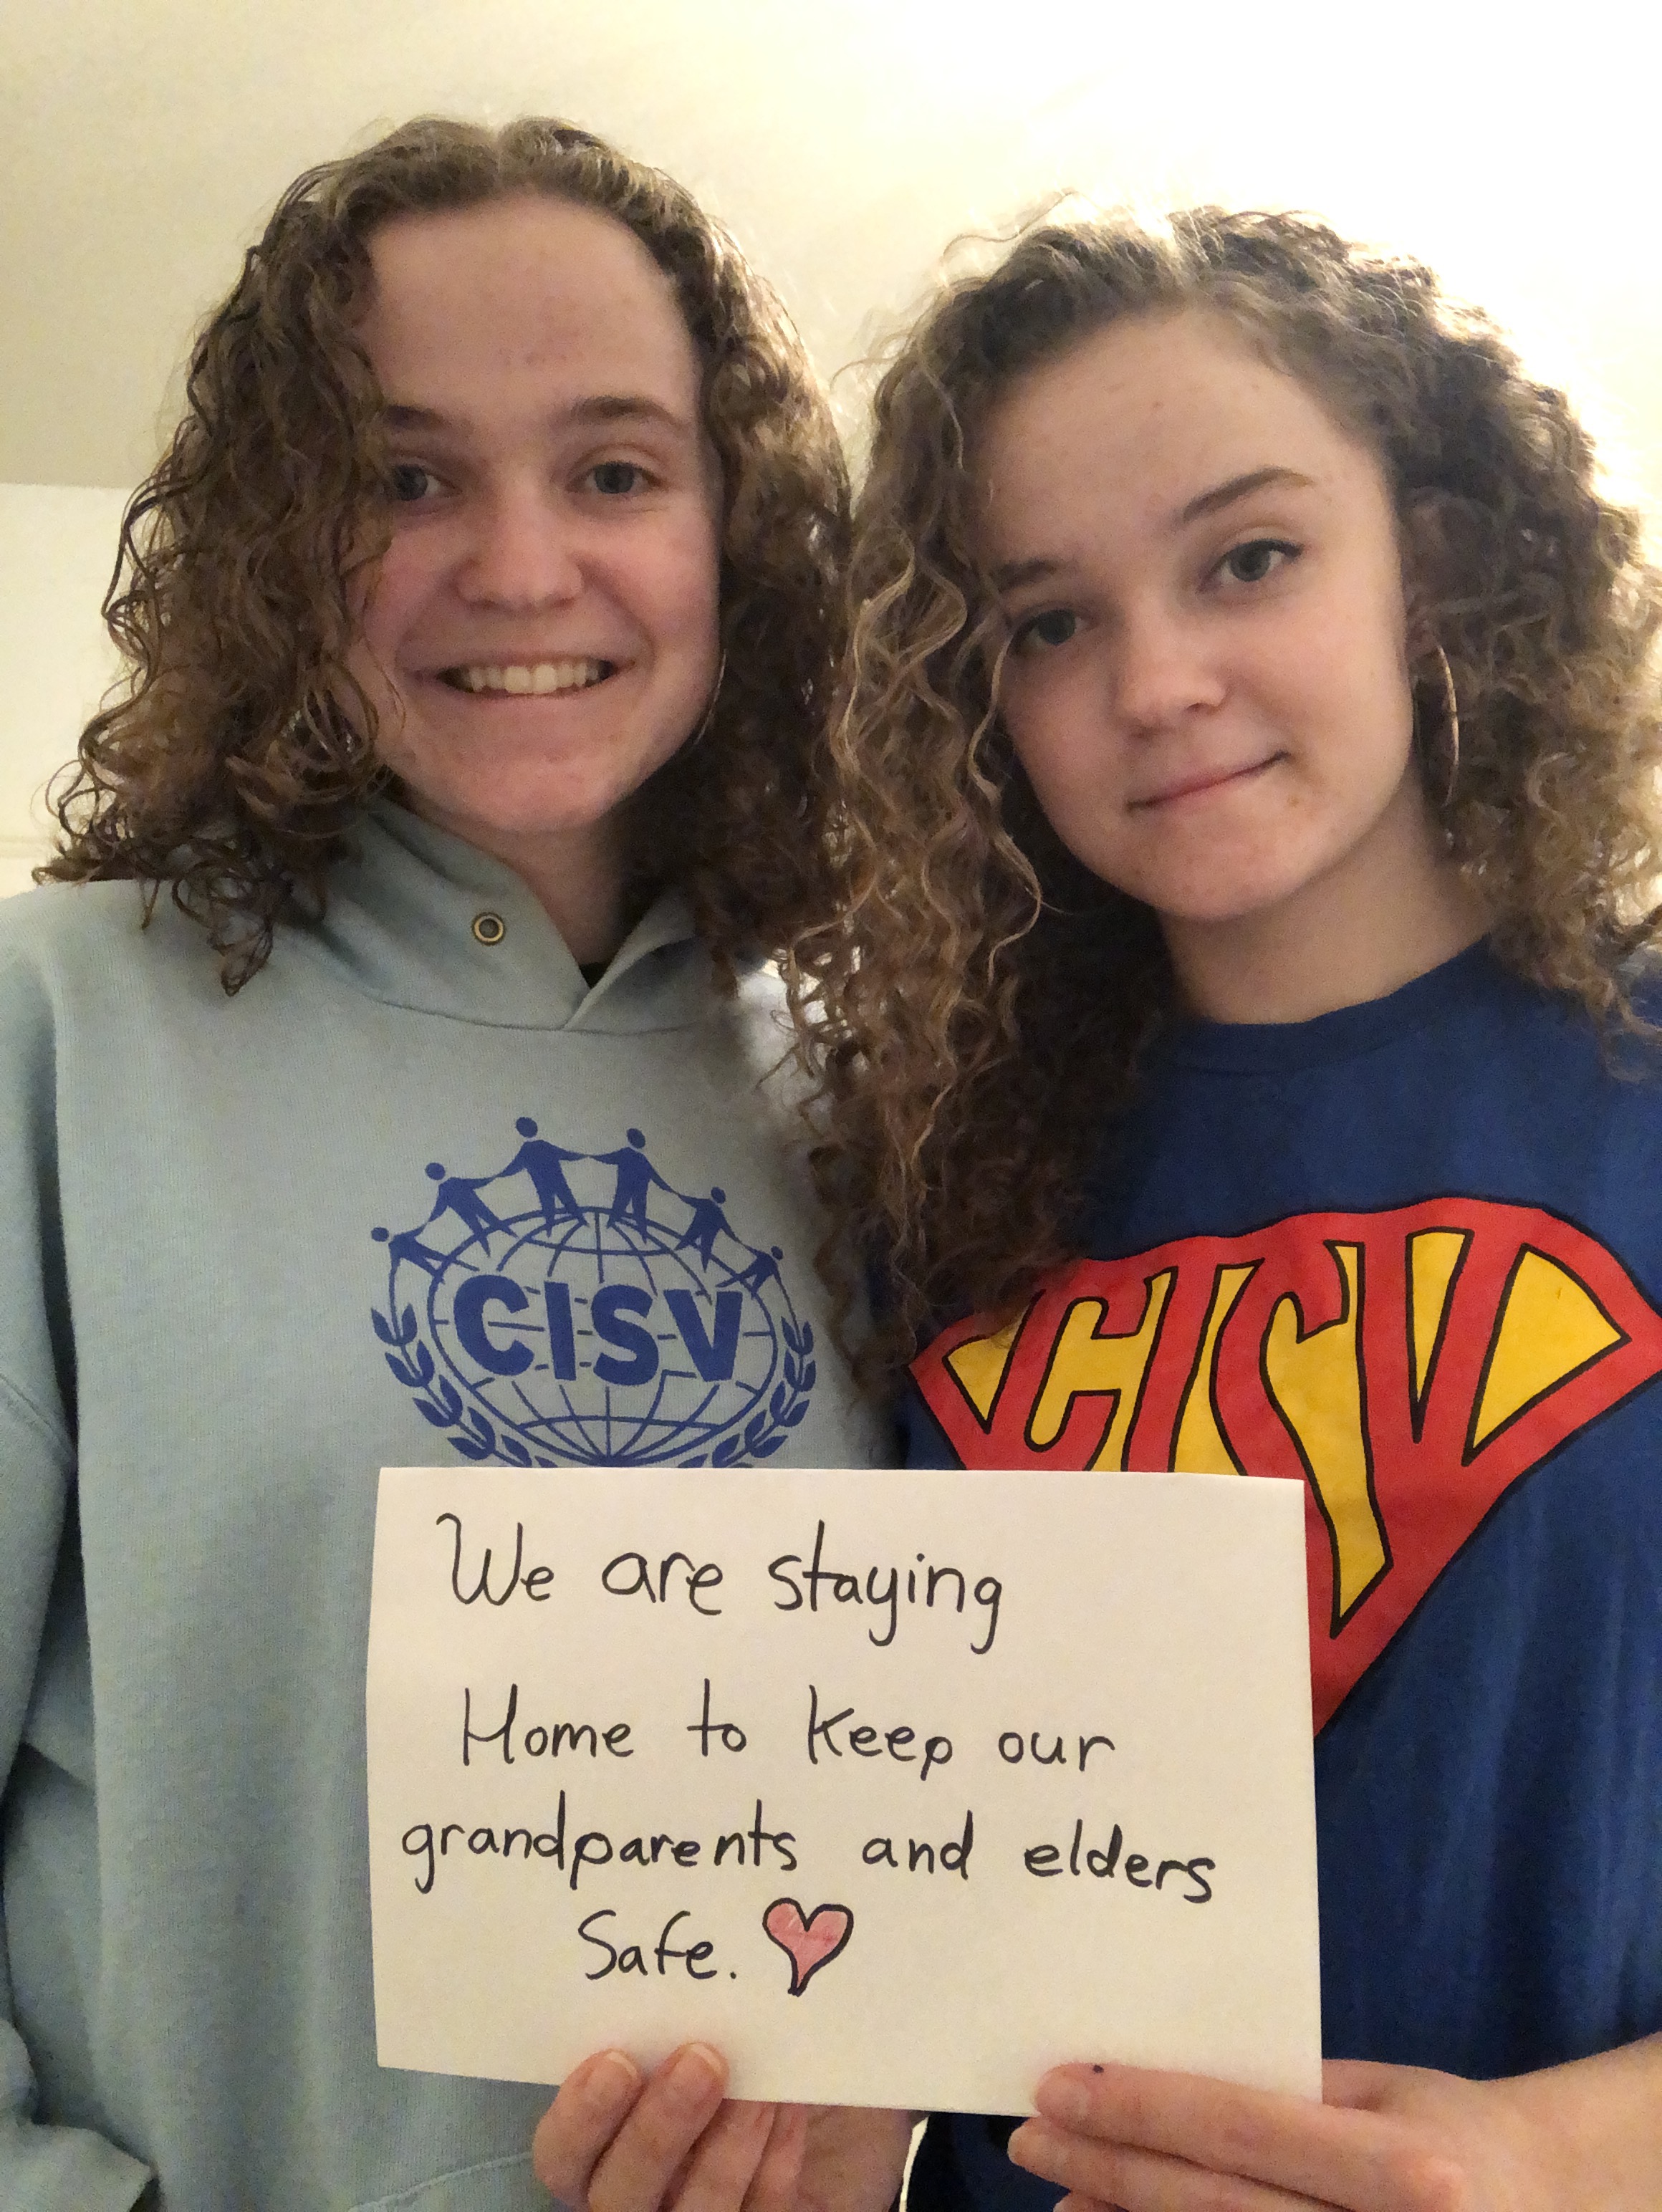 CISV
CISV
We are staying
Home to keep our
grandparents and elders
Safe.